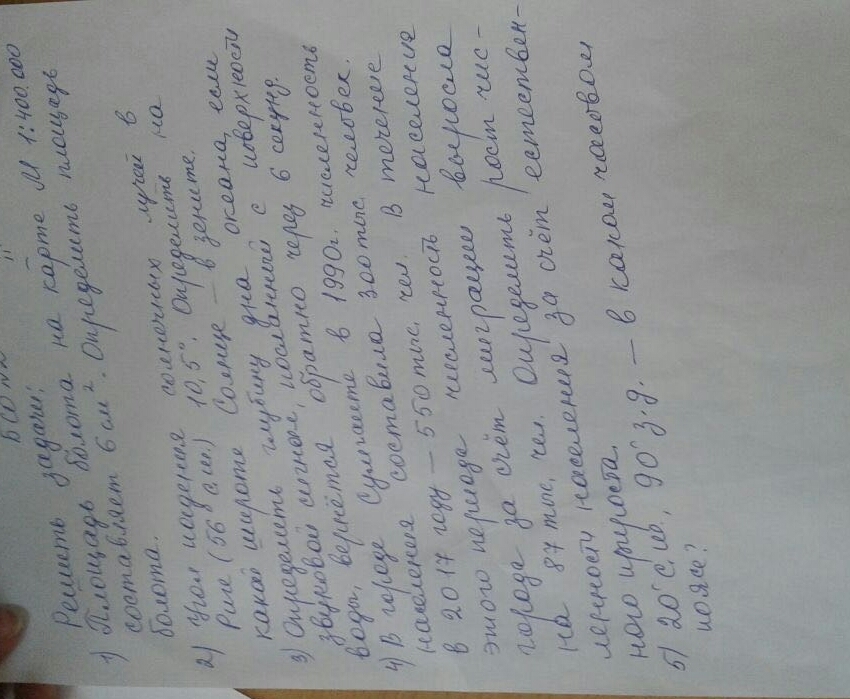 Решить задачи:
1) Площадь болота на карте М 1:400.000
составляет 6 см². Определить площадь
болота.
2) Угол падения солнечных лучей в
Риге (56° с.ш.) 10,5°. Определить на
какой широте Солнце – в зените.
3) Определить глубину дна океана, если
звуковой сигнал, посланный с поверхности
воды, вернётся обратно через 6 секунд.
4) В городе Сумгаите в 1990г. численность
населения составила 300 тыс. человек.
в 2017 году – 550 тыс. чел. В течение
этого периода численность населения
города за счёт миграции выросла
на 87 тыс. чел. Определить рост чис-
ленности населения за счёт естествен-
ного прироста.
5) 20° с.ш., 90° з.д. – в каком часовом
поясе?